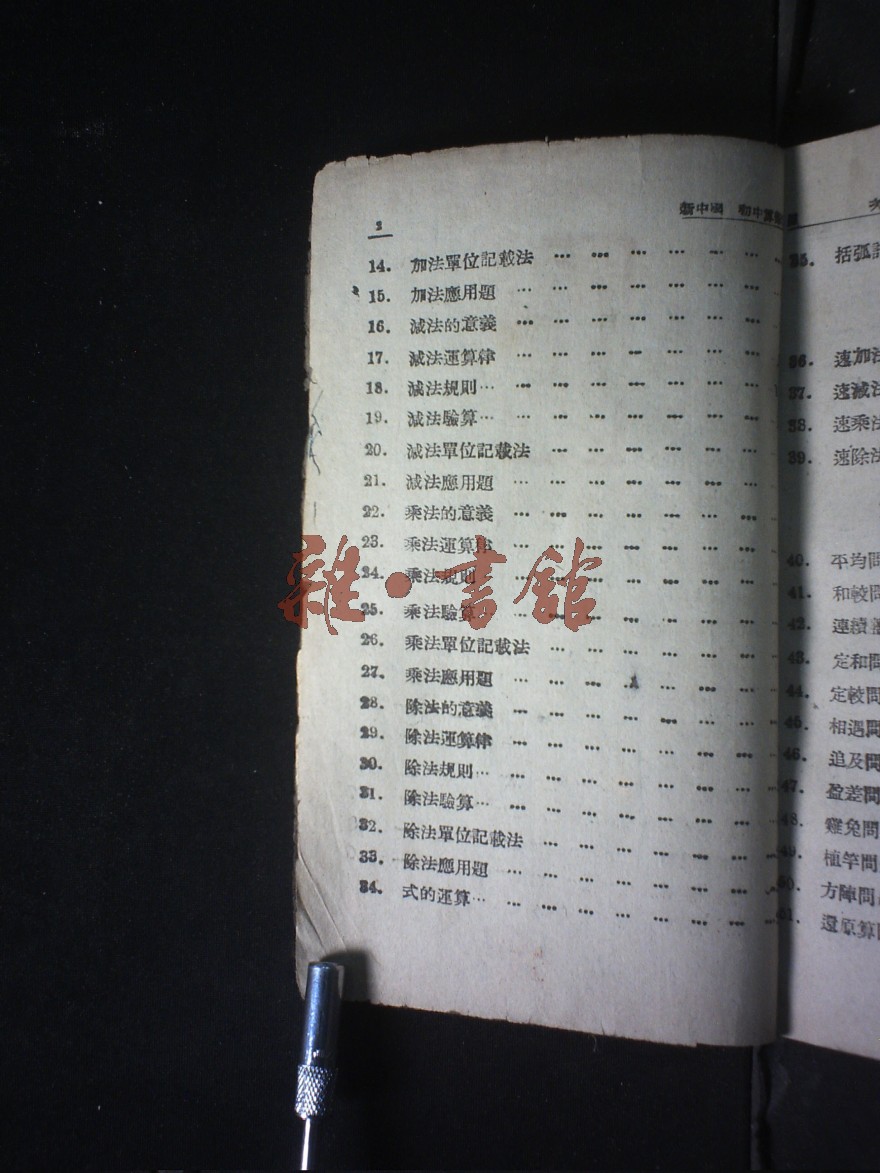 2
新中國 初中算
14. 加法單位記載法 … … … … … …
15. 加法應用題 … … … … … … …
16. 減法的意義 … … … … … … …
17. 減法運算律 … … … … … … …
18. 減法規則 … … … … … … … …
19. 減法驗算 … … … … … … … …
20. 減法單位記載法 … … … … … …
21. 減法應用題 … … … … … … …
22. 乘法的意義 … … … … … … …
23. 乘法運算律 … … … … … … …
24. 乘法規則 … … … … … … …
25. 乘法驗算 … … … … … … …
26. 乘法單位記載法 … … … … … …
27. 乘法應用題 … … … … … … …
28. 除法的意義 … … … … … … …
29. 除法運算律 … … … … … … …
30. 除法規則 … … … … … … … …
31. 除法驗算 … … … … … … … …
32. 除法單位記載法 … … … … … …
33. 除法應用題 … … … … … … …
34. 式的運算 … … … … … … … …
35. 括弧
36. 速加法
37. 速減法
38. 速乘法
39. 速除法
40. 平均問
41. 和較問
42. 連續
43. 定和問
44. 定較問
45. 相遇問
46. 追及問
47. 盈差問
48. 雞兔問
49. 植竿問
50. 方陣問
51. 還原算
雜·書館